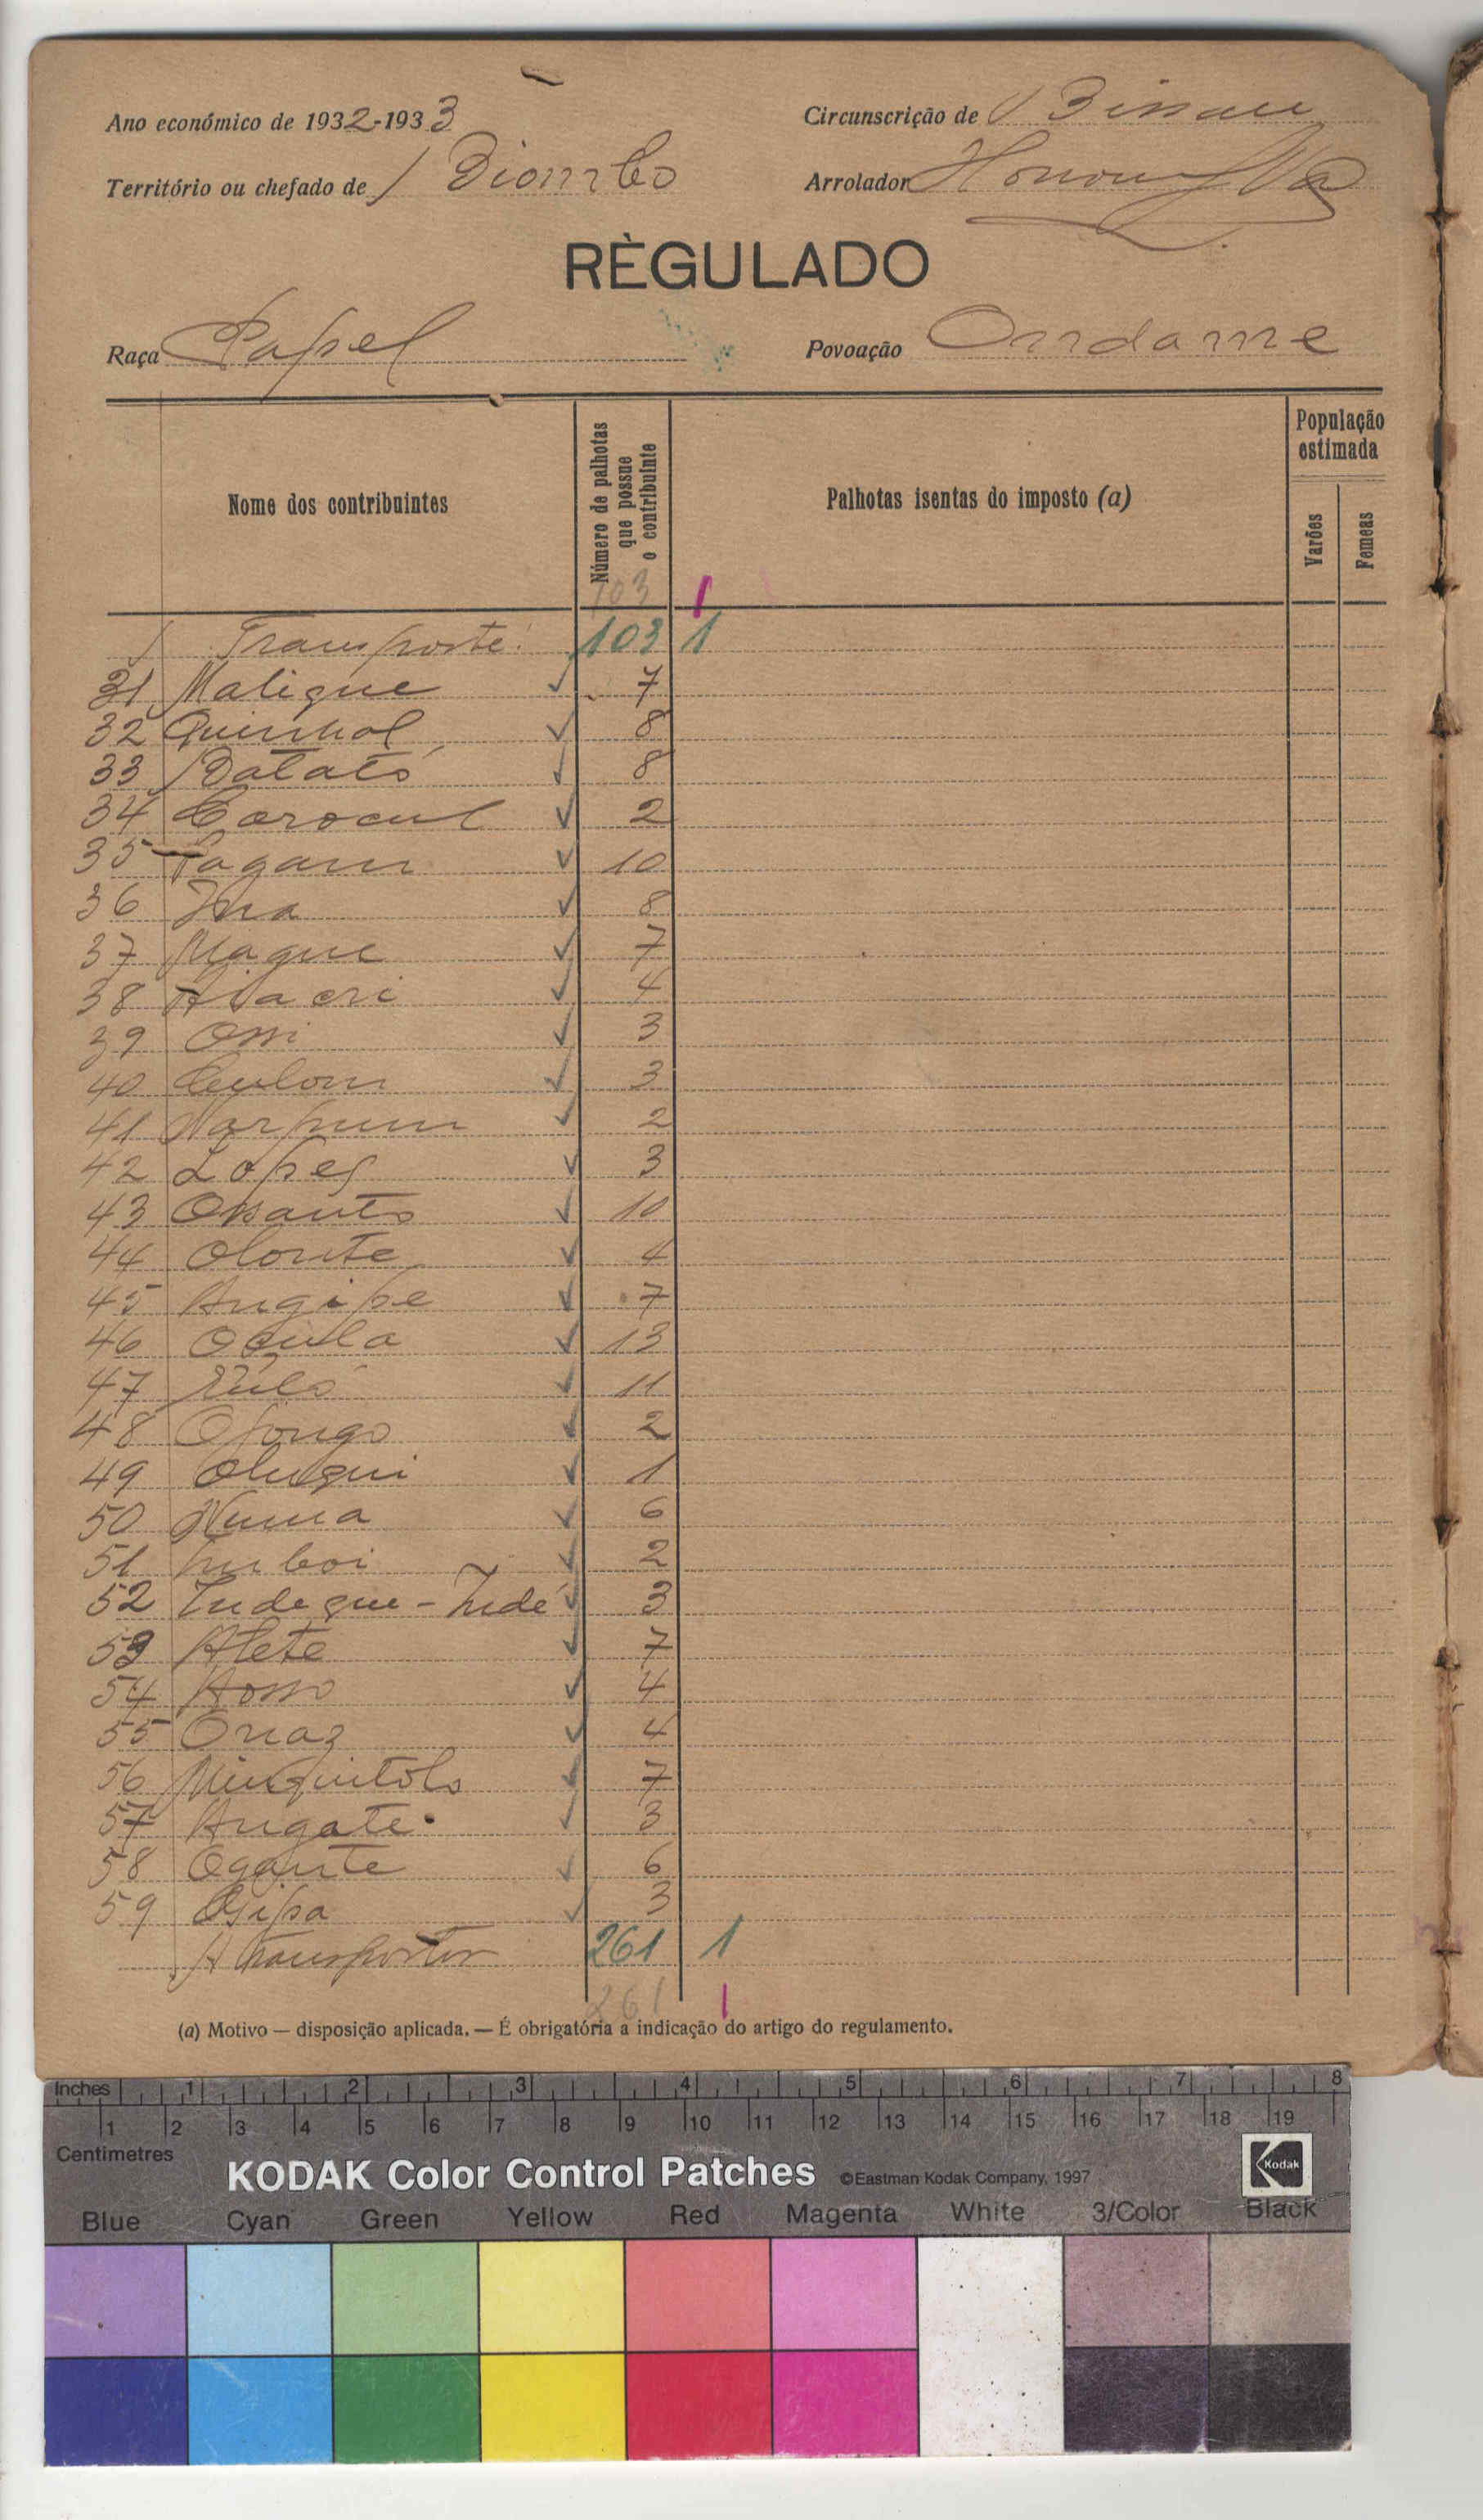 Ano económico de 1932-1933
Circunscrição de Bissau
Território ou chefado de Biombo
Arrolador
RÈGULADO
Raça Papel
Povoação Ondame
Nome dos contribuintes
Número de palhotas que possue o contribuinte
Palhotas isentas do imposto (a)
População estimada
Varões
Femeas
103 1
Transporte 103 1
31 Malique 7
32 Quinhol 8
33 Batató 8
34 Carocul 2
35 10
36 8
37 Maque 7
38 4
39 Ossi 3
40 3
41 2
42 Lopes 3
43 Ossanto 10
44 Olonte 4
45 Angipe 7
46 Ocula 13
47 11
48 Ofongo 2
49 1
50 Numa 6
51 2
52 3
53 Alete 7
54 4
55 4
56 7
57 Angate 3
58 Ogante 6
59 3
A transportar 261 1
261 1
(a) Motivo — disposição aplicada. — É obrigatória a indicação do artigo do regulamento.
Inches 1 2 3 4 5 6 7 8
1 2 3 4 5 6 7 8 9 10 11 12 13 14 15 16 17 18 19
Centimetres
KODAK Color Control Patches ©Eastman Kodak Company, 1997 Kodak
Blue Cyan Green Yellow Red Magenta White 3/Color Black